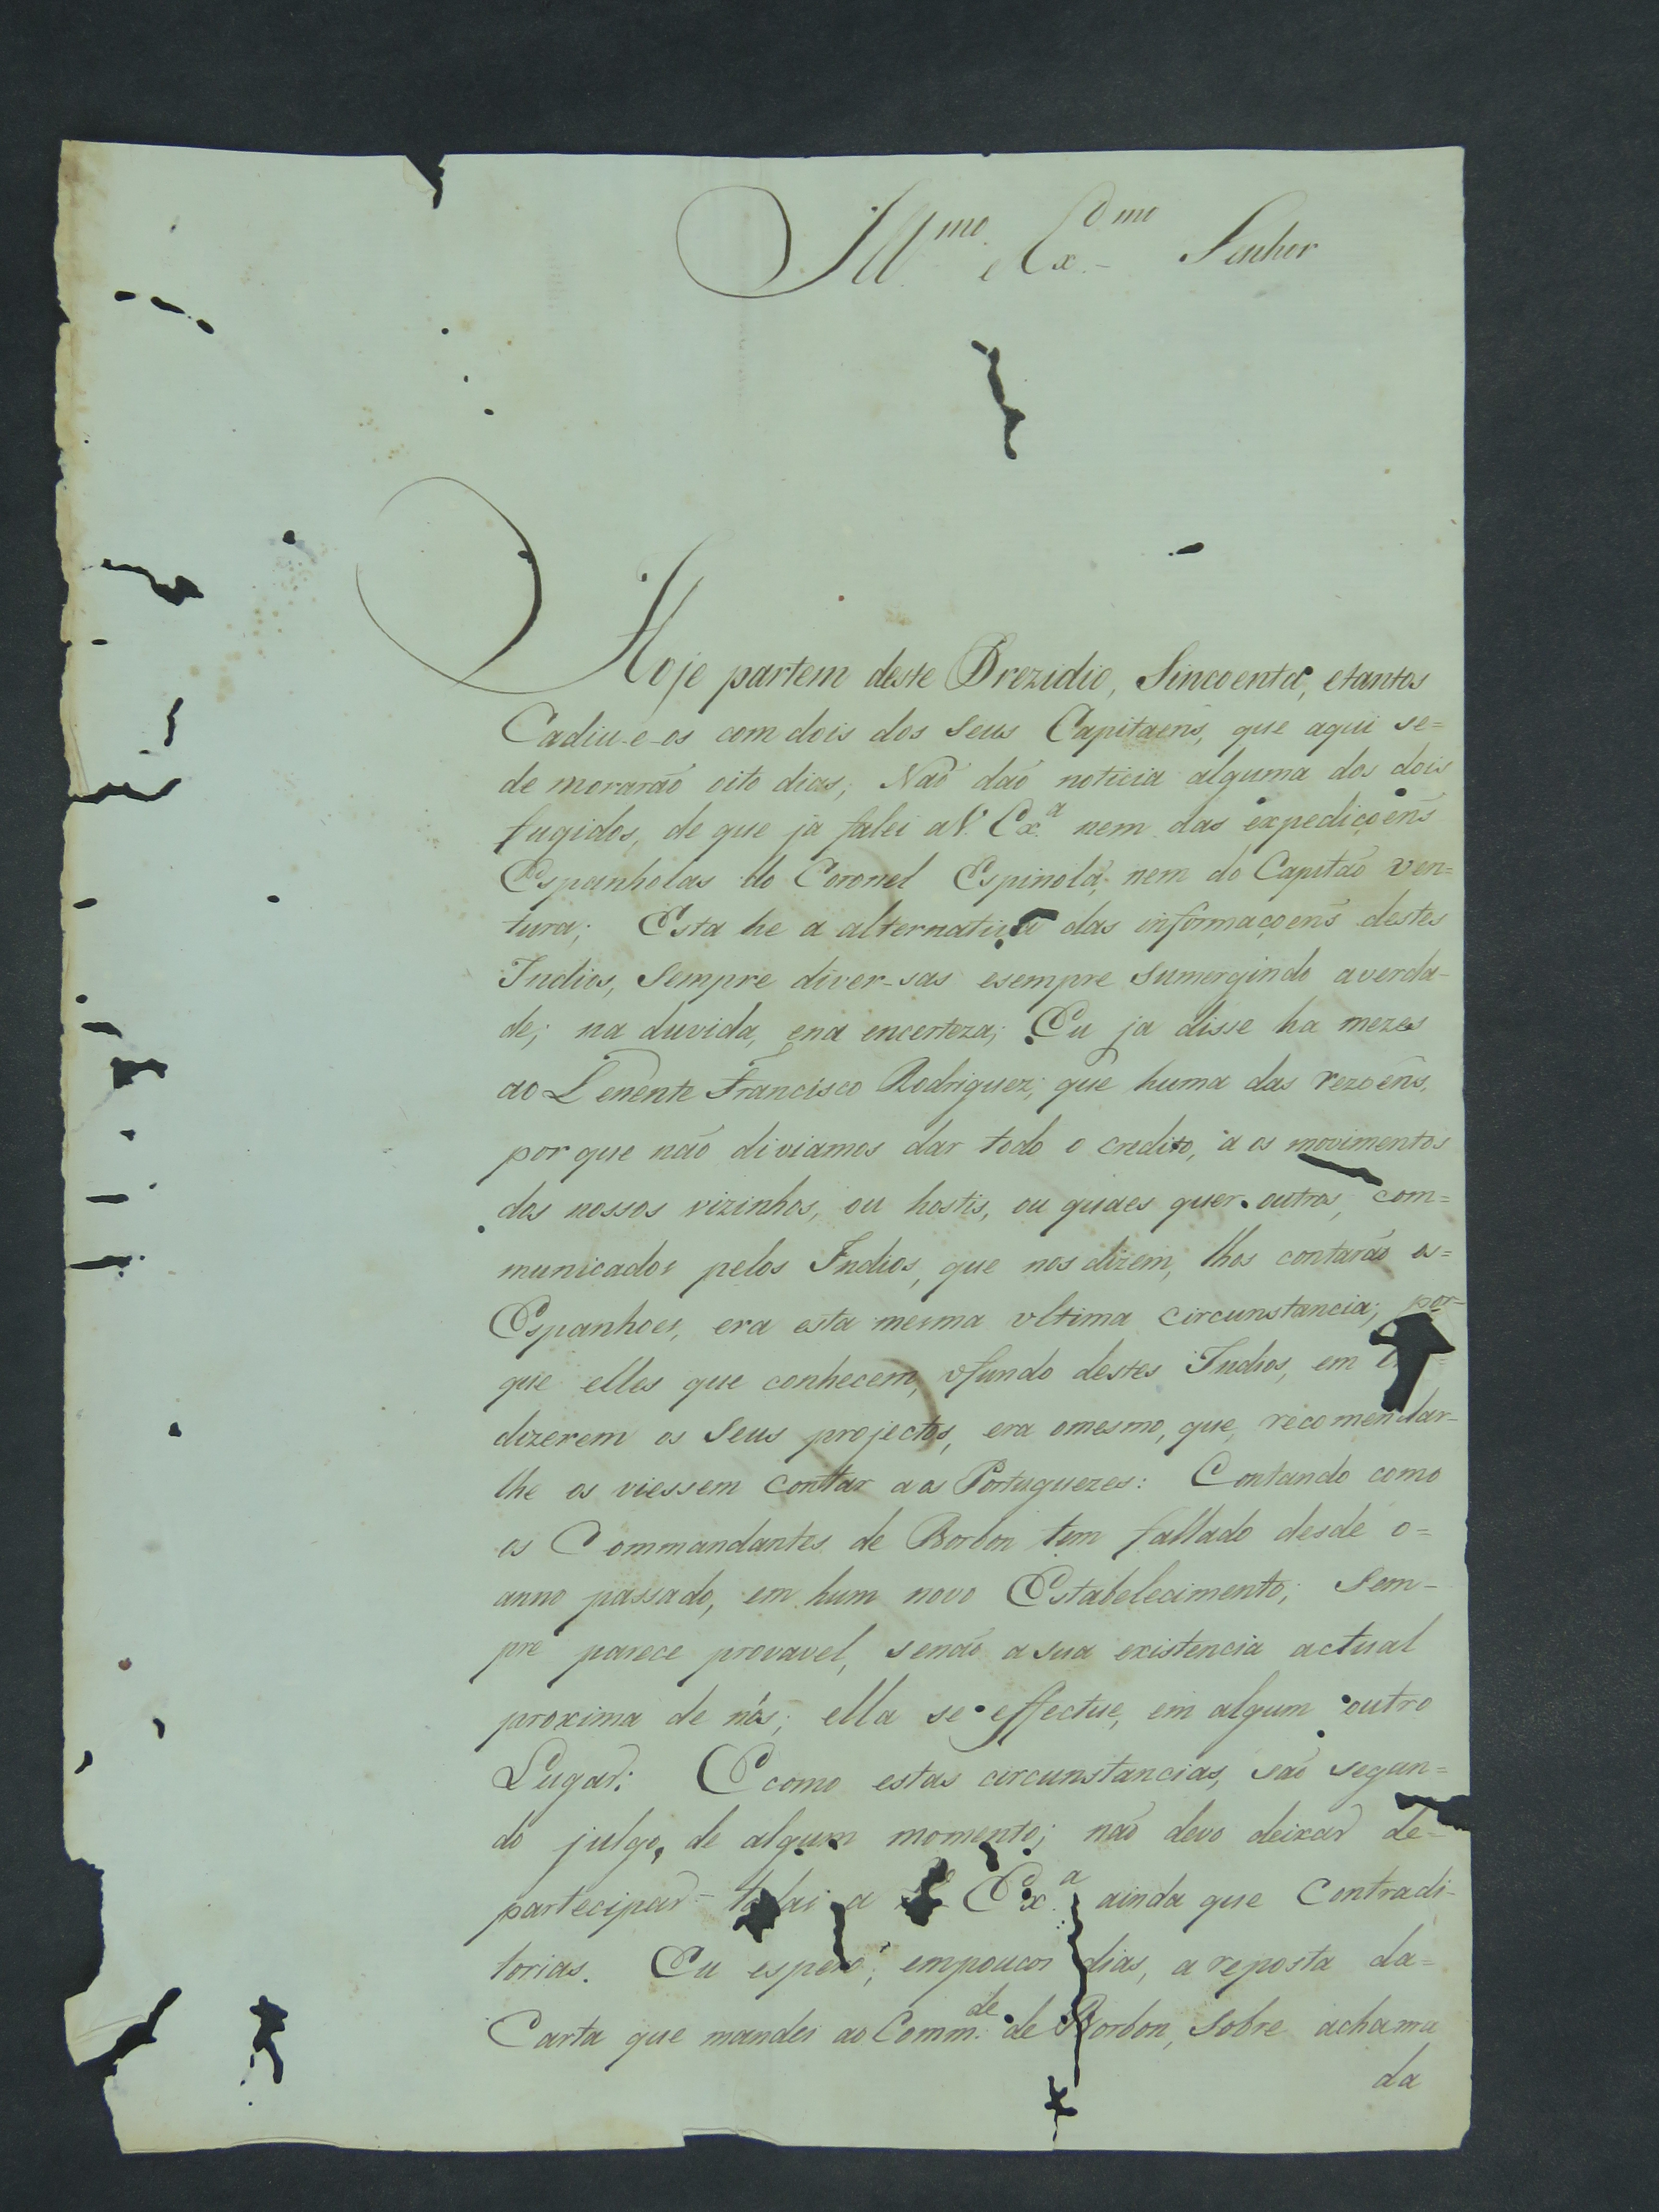 Ill.mo e Ex.mo Senhor
Hoje partem deste Prezidio, Sincoenta, etantos
Cadiu-e-os com dois dos Seus Capitaens, que aqui se=
de morarão oito dias; Não dão noticia alguma dos dois
fugidos, de que ja falei aV. Ex.a nem das expediçoens
Espanholas do Coronel Espinola, nem do Capitão Ven=
tura; Esta he a alternativa das informaçoens destes
Indios, Sempre diver-sas esempre Sumergindo averda-
de; na duvida, ena encerteza; Eu ja disse ha mezes
ao Tenente Francisco Rodriguez; que huma das rezoens,
por que não diviamos dar todo o credito, a os movimentos
dos nossos vizinhos, ou hostis, ou quaes quer outros, com=
municados pelos Indios, que nos dizem, lhos contarão os=
Espanhoes, era esta mesma ultima circunstancia; por-
que elles que conhecem, ofundo destes Indios, em
dizerem os Seus projectos, era omesmo, que, recomendar-
lhe os viessem contar a os Portuguezes: Contando como
os Commandantes de Borbon tem fallado desde o=
anno passado, em hum novo Estabelecimento; Sem-
pre parece provavel, senão a sua existencia actual
proxima de nós; ella se effectue, em algum outro
Lugar: E como estas circunstancias, são segun=
do julgo, de algum momento; não devo deixar de=
partecipar- a Ex.a ainda que Contradi-
torias. Eu espero; empoucos dias, a reposta da=
Carta que mandei ao Comm.de de Borbon, Sobre achama
da